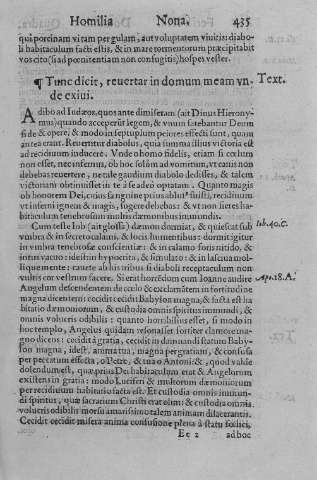 Homilia Nona. 435
qui porcinam vitam pergulam, aut voluptatem viuitis: diabo-
li habitaculum facti estis, & in mare tormentorum præcipitabit
vos cito (si ad pœnitentiam non confugitis) hospes vester.
¶ Tunc dicit, reuertar in domum meam vn- Text.
de exiui.
Adibo ad Iudæos, quos ante dimiseram (ait Diuus Hierony-
mus) quando acceperūt legem, & vnum fatebantur Deum
fide & opere, & modo in septuplum peiores effecti sunt, quam
antea erant. Reuertitur diabolus, quia summa illius victoria est
ad recidiuum inducere. Vnde ò homo fidelis, etiam si cœlum
non esset, nec infernus, ob hoc solùm ad vomitum, vt canis non
debebas reuertere, ne tale gaudium diabolo dedisses, & talem
victoriam obtinuisset in te à se adeò optatam. Quanto magis
ob honorem Dei, cuius sanguine prius ablut⁹ fuisti, recidiuum
vt inferni ignem & magis, fugere debebas: & vt non fieres ha-
bitaculum tenebrosum multis dæmonibus immundis.
Cum teste Iob (ait glossa) dæmon dormiat, & quiescat sub Iob. 40. C.
vmbra & in secreto calami, & locis humentibus: dormit igitur
in vmbra tenebrosæ conscientiæ: & in calamo foris nitido, &
intus vacuo: idest in hypocrita, & simulato: & in lasciua mol-
liquemente: cauete ab his tribus si diaboli receptaculum non
vultis cor vestrum facere. Si erat horrēdum cum Ioanne audire Apo. 18. A.
Angelum descendentem de cœlo & exclamātem in fortitudine
magna dicentem: cecidit cecidit Babylon magna, & facta est ha
bitatio dæmoniorum, & custodia omnis spiritus immundi, &
omnis volucris odibilis: quanto horribilius esset, si modo in
hoc templo, Angelus quidam resonaret fortiter clamore mag-
no dicens: cecidit à gratia, cecidit in damnandi statum Baby-
lon magna, idest, anima tua, magna per gratiam, & confusa
per peccatum effecta, ò Petre, & tua ò Antoni: &, quod valde
dolendum est, quæ prius Dei habitaculum erat & Angelorum
existens in gratia: modo Luciferi & multorum dæmoniorum
per recidiuum habitatio facta est. Et custodia omnis immun-
di spiritus, quæ sacrarium Christi erat olim: & custodia omnis
volucris odibilis morsu amarissimo talem animam dilacerantis.
Cecidit cecidit misera anima confusione plena à statu fœlici,
Ee 2 ad hoc